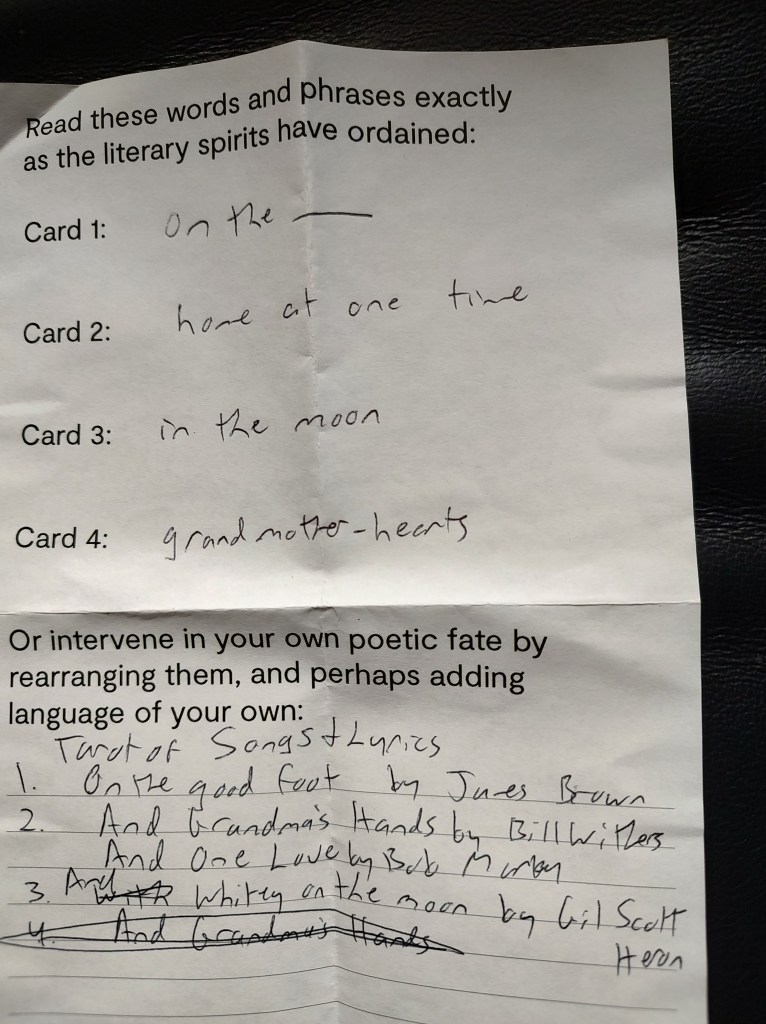 Read these words and phrases exactly
as the literary spirits have ordained:
Card 1: On the —
Card 2: home at one time
Card 3: in the moon
Card 4: grandmother-hearts
Or intervene in your own poetic fate by
rearranging them, and perhaps adding
language of your own:
Tarot of Songs + Lyrics
1. On the good foot by James Brown
2. And Grandma's Hands by Bill Withers
And One Love by Bob Marley
3. And With Whitey on the moon by Gil Scott
Heron
4. And Grandma's Hands